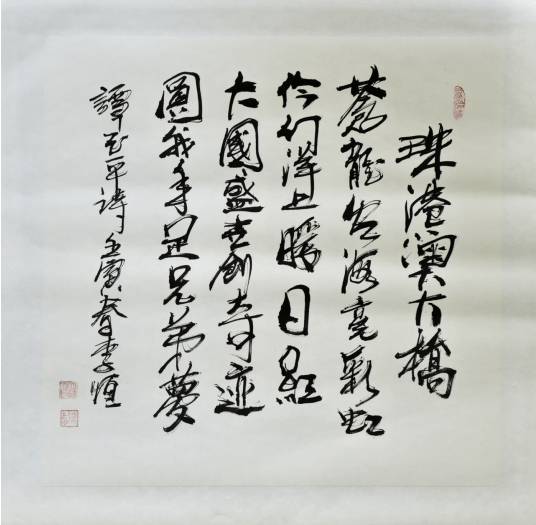 珠港澳大橋
蒼龍出海亮彩虹
伶仃洋上暖日
大國盛世創奇迹
圓我手足兄弟夢
譚 平詩 壬寅春李恒